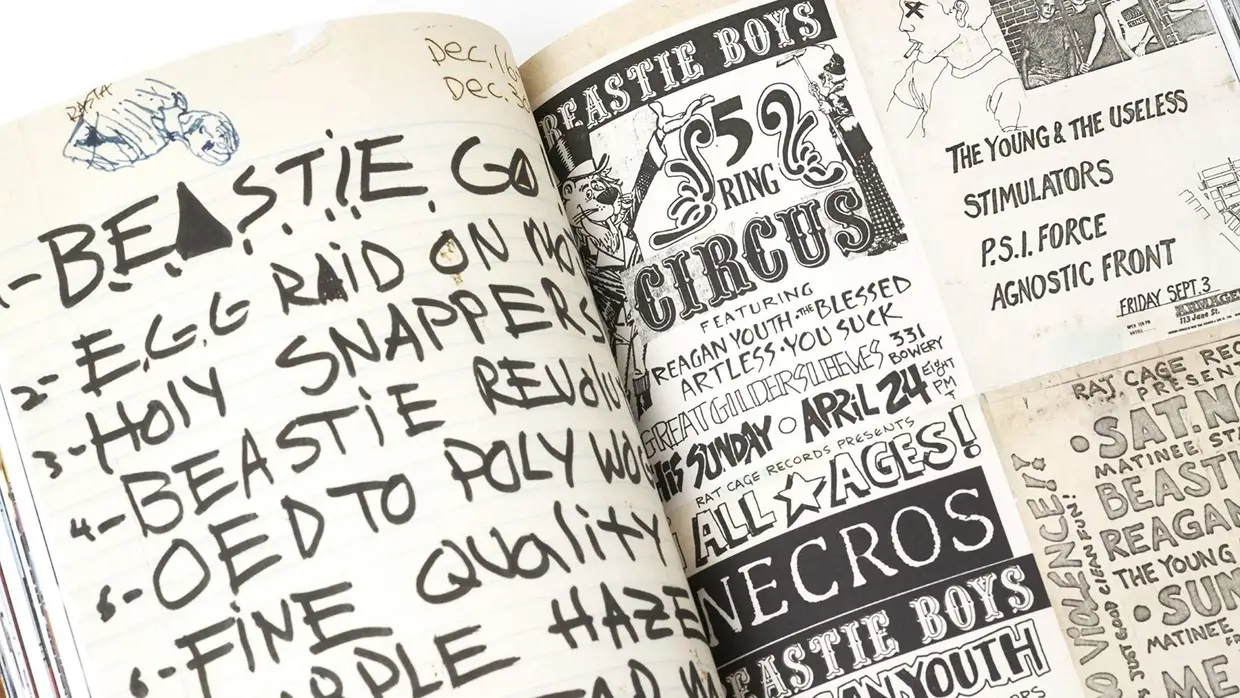 RASTA
Dec. 16
Dec. 3
1- BEASTIE GO
2- E.G.G RAID ON MO
3- HOLY SNAPPERS
4- BEASTIE REVOLU
OED TO POLYWO
6- FINE QUALITY
HAZE
BEASTIE BOYS
$5
RING
CIRCUS
FEATURING
REAGAN YOUTH • THE BLESSED
ARTLESS • YOU SUCK
GREAT GILDERSLEEVES 331 BOWERY
THIS SUNDAY APRIL 24 EigHt PM
RAT CAGE RECORDS PRESENTS
ALL AGES!
NECROS
BEASTIE BOYS
THE YOUNG & THE USELESS
STIMULATORS
P.S.I. FORCE
AGNOSTIC FRONT
FRIDAY SEPT. 3
113 Jane St.
RAT CAGE REC
PRESEN
• SAT. NO
MATINEE STA
BEASTI
REAGAN
THE YOUNG
• SUN
MATINEE
ME
VIOLENCE!!
JUST GOOD CLEAN FUN!